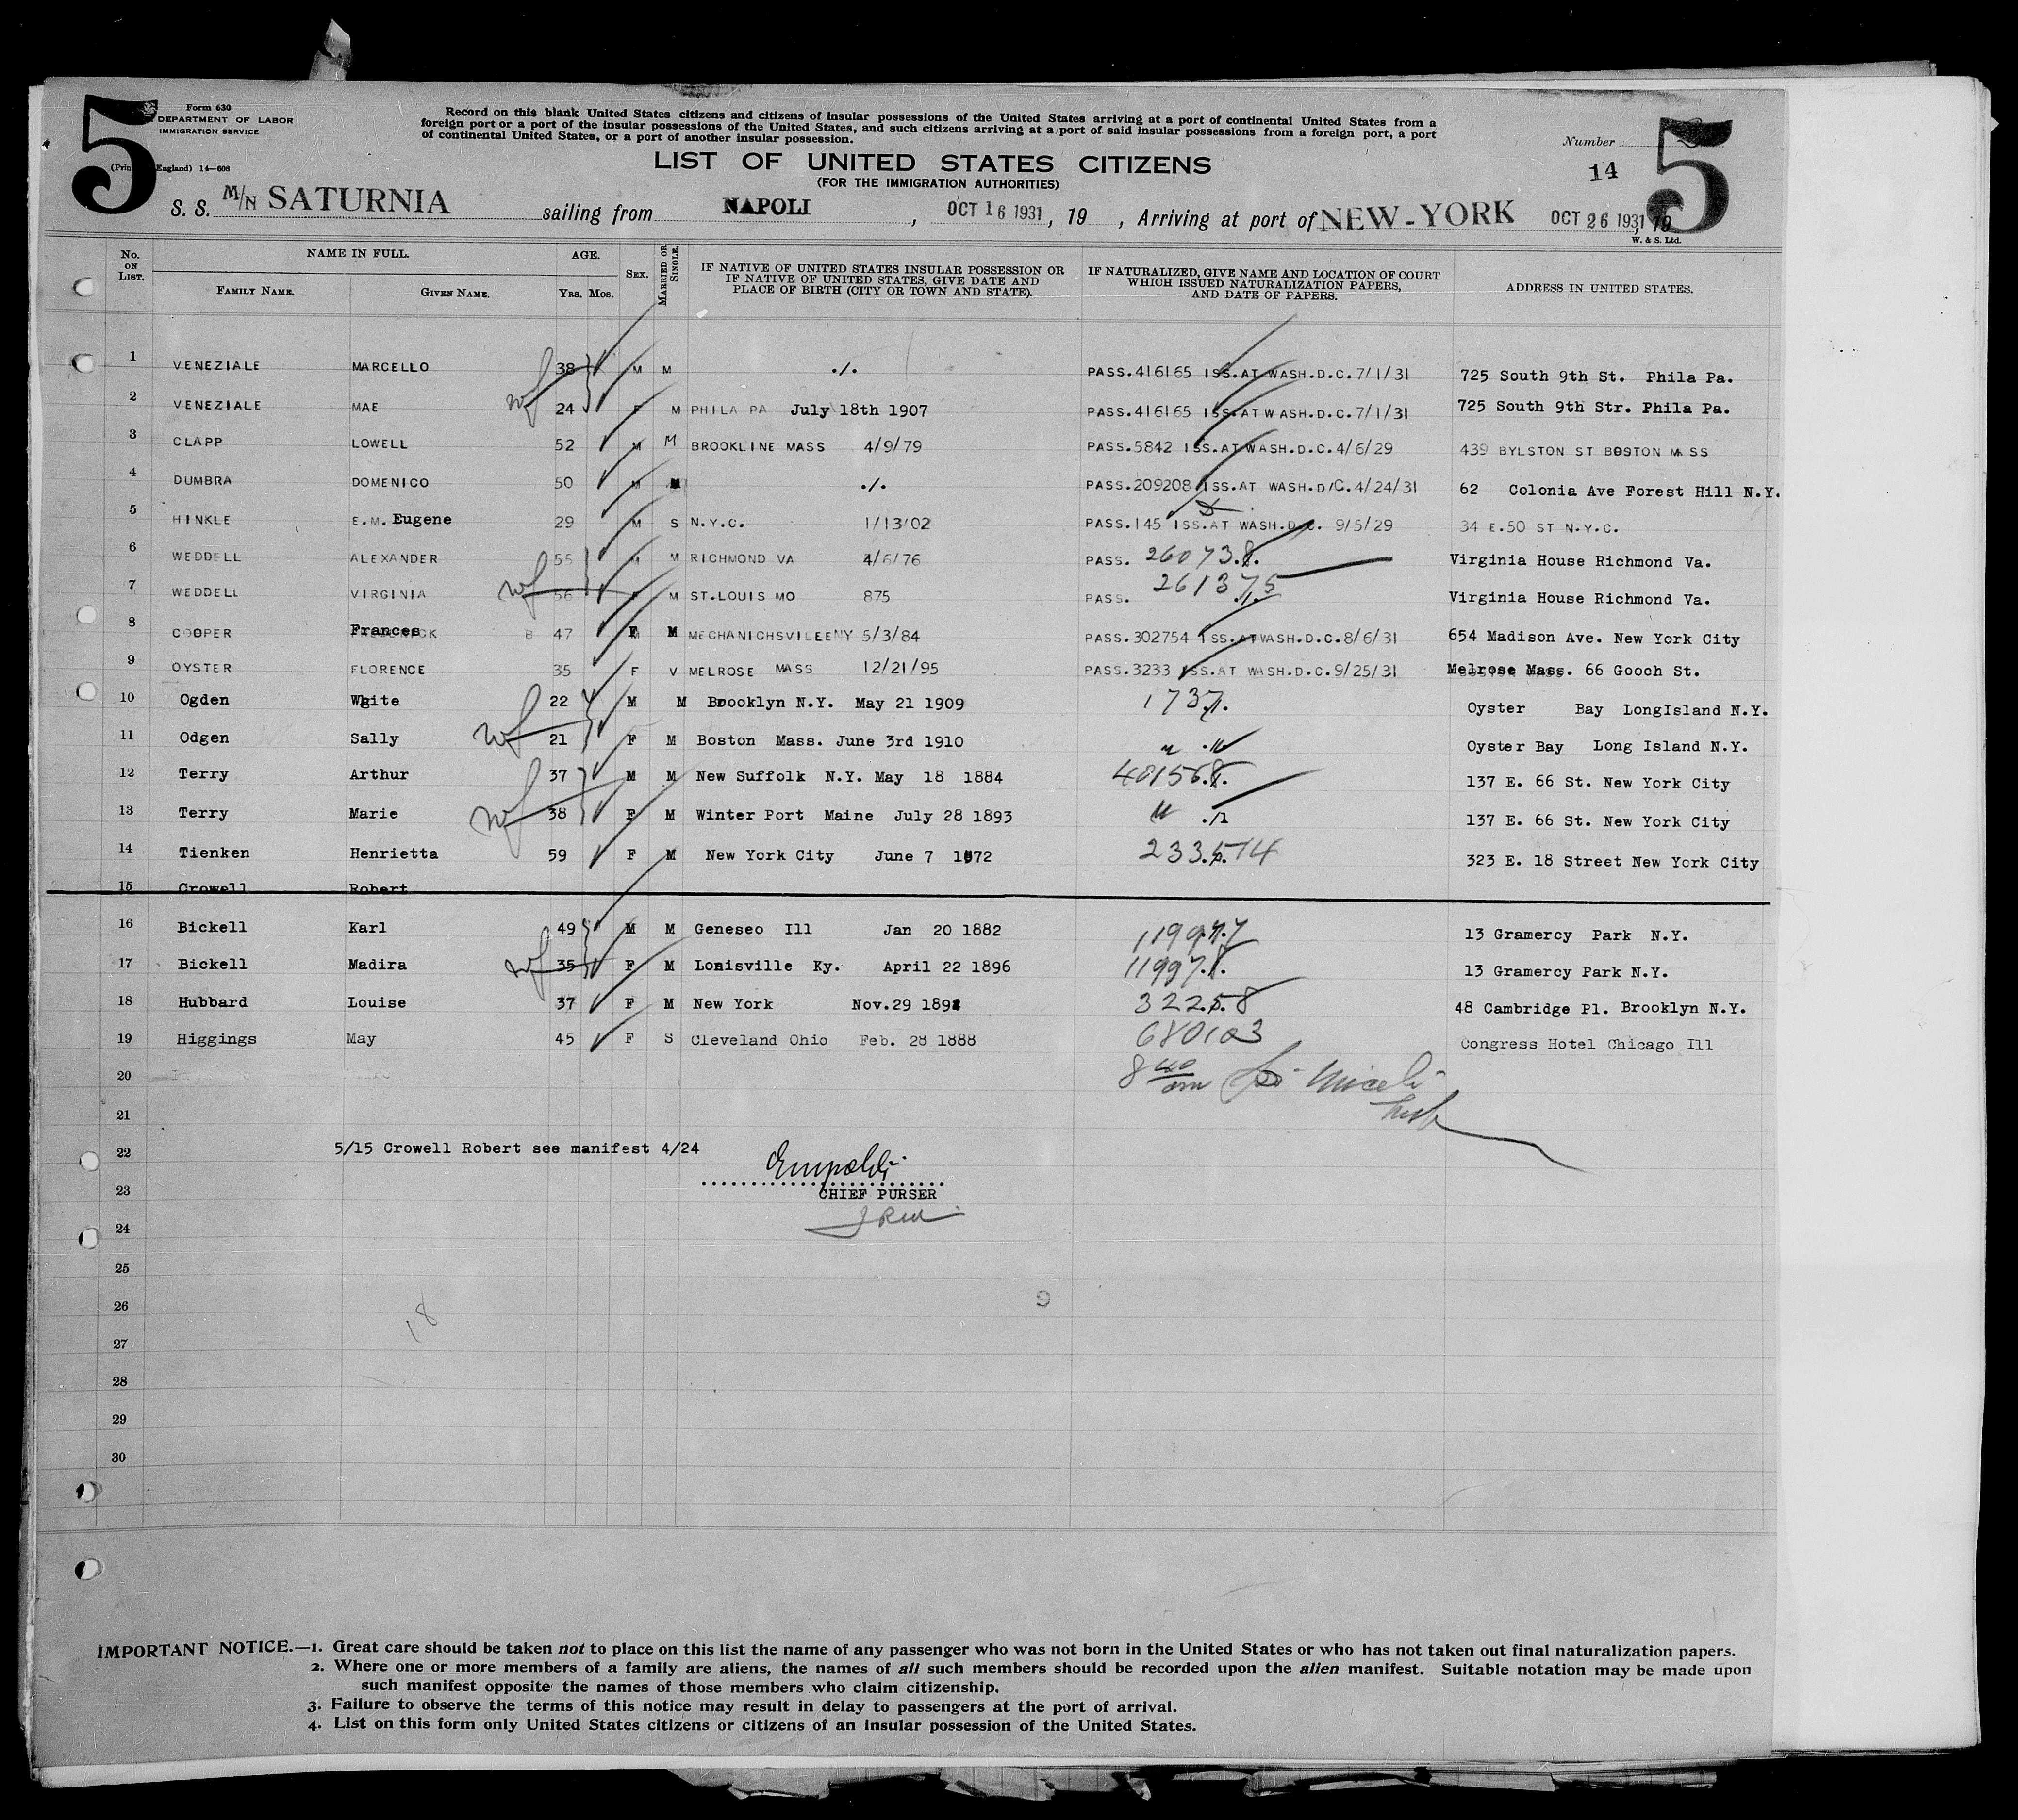 5
Form 630
DEPARTMENT OF LABOR
IMMIGRATION SERVICE
(Prin England) 14—608
Record on this blank United States citizens and citizens of insular possessions of the United States arriving at a port of continental United States from a
foreign port or a port of the insular possessions of the United States, and such citizens arriving at a port of said insular possessions from a foreign port, a port
of continental United States, or a port of another insular possession.
LIST OF UNITED STATES CITIZENS
(FOR THE IMMIGRATION AUTHORITIES)
Number
14
5
S. S. M/N SATURNIA sailing from NAPOLI, OCT 16 1931, 19 , Arriving at port of NEW-YORK OCT 26 1931, 19
W. & S. Ltd.
No. ON LIST. NAME IN FULL. AGE. SEX. MARRIED OR SINGLE. IF NATIVE OF UNITED STATES INSULAR POSSESSION OR IF NATIVE OF UNITED STATES, GIVE DATE AND PLACE OF BIRTH (CITY OR TOWN AND STATE). IF NATURALIZED, GIVE NAME AND LOCATION OF COURT WHICH ISSUED NATURALIZATION PAPERS, AND DATE OF PAPERS. ADDRESS IN UNITED STATES.
FAMILY NAME. GIVEN NAME. YRS. MOS.
1 VENEZIALE MARCELLO 38 M M ./. PASS.416165 ISS.AT WASH.D.C.7/1/31 725 South 9th St. Phila Pa.
2 VENEZIALE MAE wf 24 F M PHILA PA July 18th 1907 PASS.416165 ISS.AT WASH.D.C.7/1/31 725 South 9th Str. Phila Pa.
3 CLAPP LOWELL 52 M M BROOKLINE MASS 4/9/79 PASS.5842 ISS.AT WASH.D.C.4/6/29 439 BYLSTON ST BOSTON MASS
4 DUMBRA DOMENICO 50 M M ./. PASS.209208 ISS.AT WASH.D/C.4/24/31 62 Colonia Ave Forest Hill N.Y.
5 HINKLE E.M. Eugene 29 M S N.Y.C. 1/13/02 PASS.145 ISS.AT WASH.D.C. 9/5/29 34 E.50 ST N.Y.C.
6 WEDDELL ALEXANDER 55 M M RICHMOND VA 4/6/76 PASS. 26073 Virginia House Richmond Va.
7 WEDDELL VIRGINIA wf 56 F M ST.LOUIS MO 875 PASS. 261375 Virginia House Richmond Va.
8 COOPER Frances B 47 F M MECHANICHSVILEENY 5/3/84 PASS.302754 ISS.AT WASH.D.C.8/6/31 654 Madison Ave. New York City
9 OYSTER FLORENCE 35 F V MELROSE MASS 12/21/95 PASS.3233 ISS.AT WASH.D.C.9/25/31 Melrose Mass. 66 Gooch St.
10 Ogden White 22 M M Brooklyn N.Y. May 21 1909 1737 Oyster Bay LongIsland N.Y.
11 Odgen Sally wf 21 F M Boston Mass. June 3rd 1910 " " Oyster Bay Long Island N.Y.
12 Terry Arthur 37 M M New Suffolk N.Y. May 18 1884 401568 137 E. 66 St. New York City
13 Terry Marie wf 38 F M Winter Port Maine July 28 1893 " 137 E. 66 St. New York City
14 Tienken Henrietta 59 F M New York City June 7 1872 233514 323 E. 18 Street New York City
15 Crowell Robert
16 Bickell Karl 49 M M Geneseo Ill Jan 20 1882 119977 13 Gramercy Park N.Y.
17 Bickell Madira wf 35 F M Louisville Ky. April 22 1896 119978 13 Gramercy Park N.Y.
18 Hubbard Louise 37 F M New York Nov.29 1892 32258 48 Cambridge Pl. Brooklyn N.Y.
19 Higgings May 45 F S Cleveland Ohio Feb. 28 1888 680103 Congress Hotel Chicago Ill
20 8 40 am Miceli
21 Insp
22 5/15 Crowell Robert see manifest 4/24
23 CHIEF PURSER
24
25
26 18 9
27
28
29
30
IMPORTANT NOTICE.—1. Great care should be taken not to place on this list the name of any passenger who was not born in the United States or who has not taken out final naturalization papers.
2. Where one or more members of a family are aliens, the names of all such members should be recorded upon the alien manifest. Suitable notation may be made upon
such manifest opposite the names of those members who claim citizenship.
3. Failure to observe the terms of this notice may result in delay to passengers at the port of arrival.
4. List on this form only United States citizens or citizens of an insular possession of the United States.